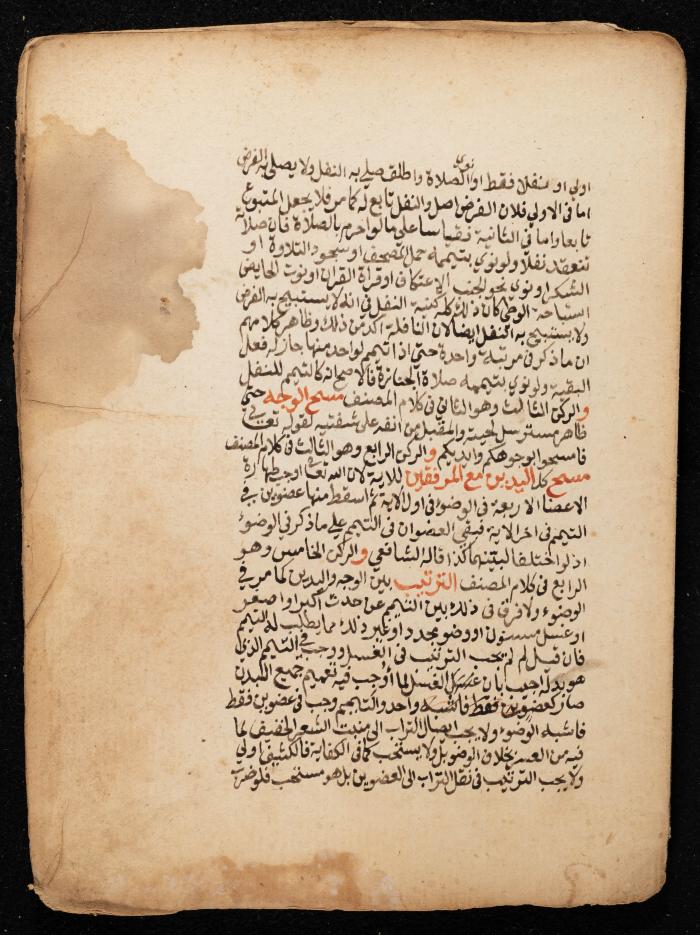 اولي او نفلا فقط او نوي الصلاة واطلق صلي به النفل ولا يصلي به الفرض
اما في الاولي فلان الفرض اصل والنفل تابع له كما مر فلا يجعل المتبوع
تابعا واما في الثانية فقياسا علي ما لو احرم بالصلاة فان صلاته
تنعقد نفلا ولو نوي بتيممه حمل المصحف او سجود التلاوة او
الشكر او نوي نحو الجنب الاعتكاف او قراة القران او نوت الحايض
استباحة الوطي كان ذلك كله كنية النفل في انه لا يستبيح به الفرض
ولا يستبيح به النفل ايضا لان النافلة اكد من ذلك وظاهر كلامهم
ان ما ذكر في مرتبة واحدة حتي اذا تيمم لواحد منها جاز له فعل
البقية ولو نوي بتيممه صلاة الجنازة فالاصح انه كالتيمم للنفل
والركن الثالث وهو الثاني في كلام المصنف مسح الوجه حتي
ظاهر مسترسل لحيته والمقبل من انفه علي شفتيه لقوله تعالي
فامسحوا بوجوهكم وايديكم والركن الرابع وهو الثالث في كلام المصنف
مسح كل اليدين مع المرفقين للاية لان الله تعا اوجب طهارة
الاعضا الاربعة في الوضوء في اول الاية ثم اسقط منها عضوين في
التيمم في اخر الاية فبقي العضوان في التيمم علي ما ذكر في الوضوء
اذ لو اختلفا لبينهما كذا قاله الشافعي والركن الخامس وهو
الرابع في كلام المصنف الترتيب بين الوجه واليدين لما مر في
الوضوء ولا فرق في ذلك بين التيمم عن حدث اكبر او اصغر
او غسل مسنون او وضوء مجدد او غير ذلك مما يطلب له التيمم
فان قيل لم لم يجب الترتيب في الغسل ووجب في التيمم الذي
هو بدله اجيب بان الغسل لما اوجب فيه تعميم جميع البدن
صار كعضو واحد والتيمم وجب في عضوين فقط
فاشبه الوضوء ولا يجب ايصال التراب الي منبت الشعر الخفيف لما
فيه من العسر بخلاف الوضو بل ولا يستحب كما في الكفاية فالكثيف اولي
ولا يجب الترتيب في نقل التراب الي العضوين بل هو مستحب فلو ضرب